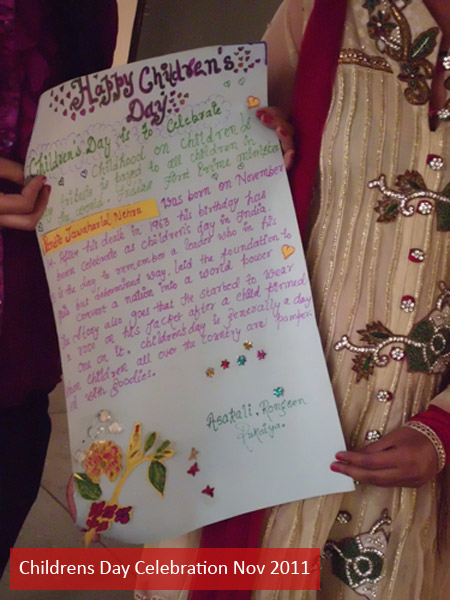 Happy Children's
Day
Children's Day is to celebrate
Childhood on Children's
tribute is based to all children in
the world. Indias First Prime minister
Jawaharlal Nehru was born on November
14. After his death in 1963 his birthday has
been celebrate as children's day in India.
is the day to remember a leader who in his
but determined way, laid the foundation to
convert a nation into a world power
story also goes that he started to wear
a rose on his jacket after a child pinned
one on it. children's day is generally a day
when children all over the country are pamper
ed with goodies.
Asakali. Rongeen
Childrens Day Celebration Nov 2011